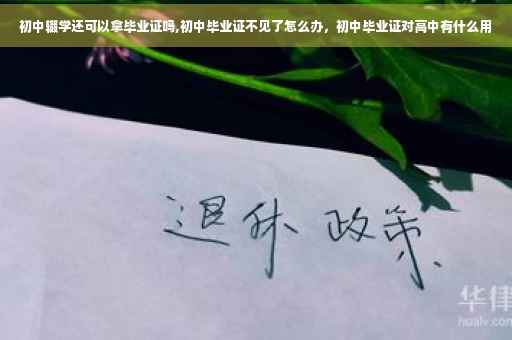 初中辍学还可以拿毕业证吗,初中毕业证不见了怎么办，初中毕业证对高中有什么用
退休 政策
华律
hualv.com